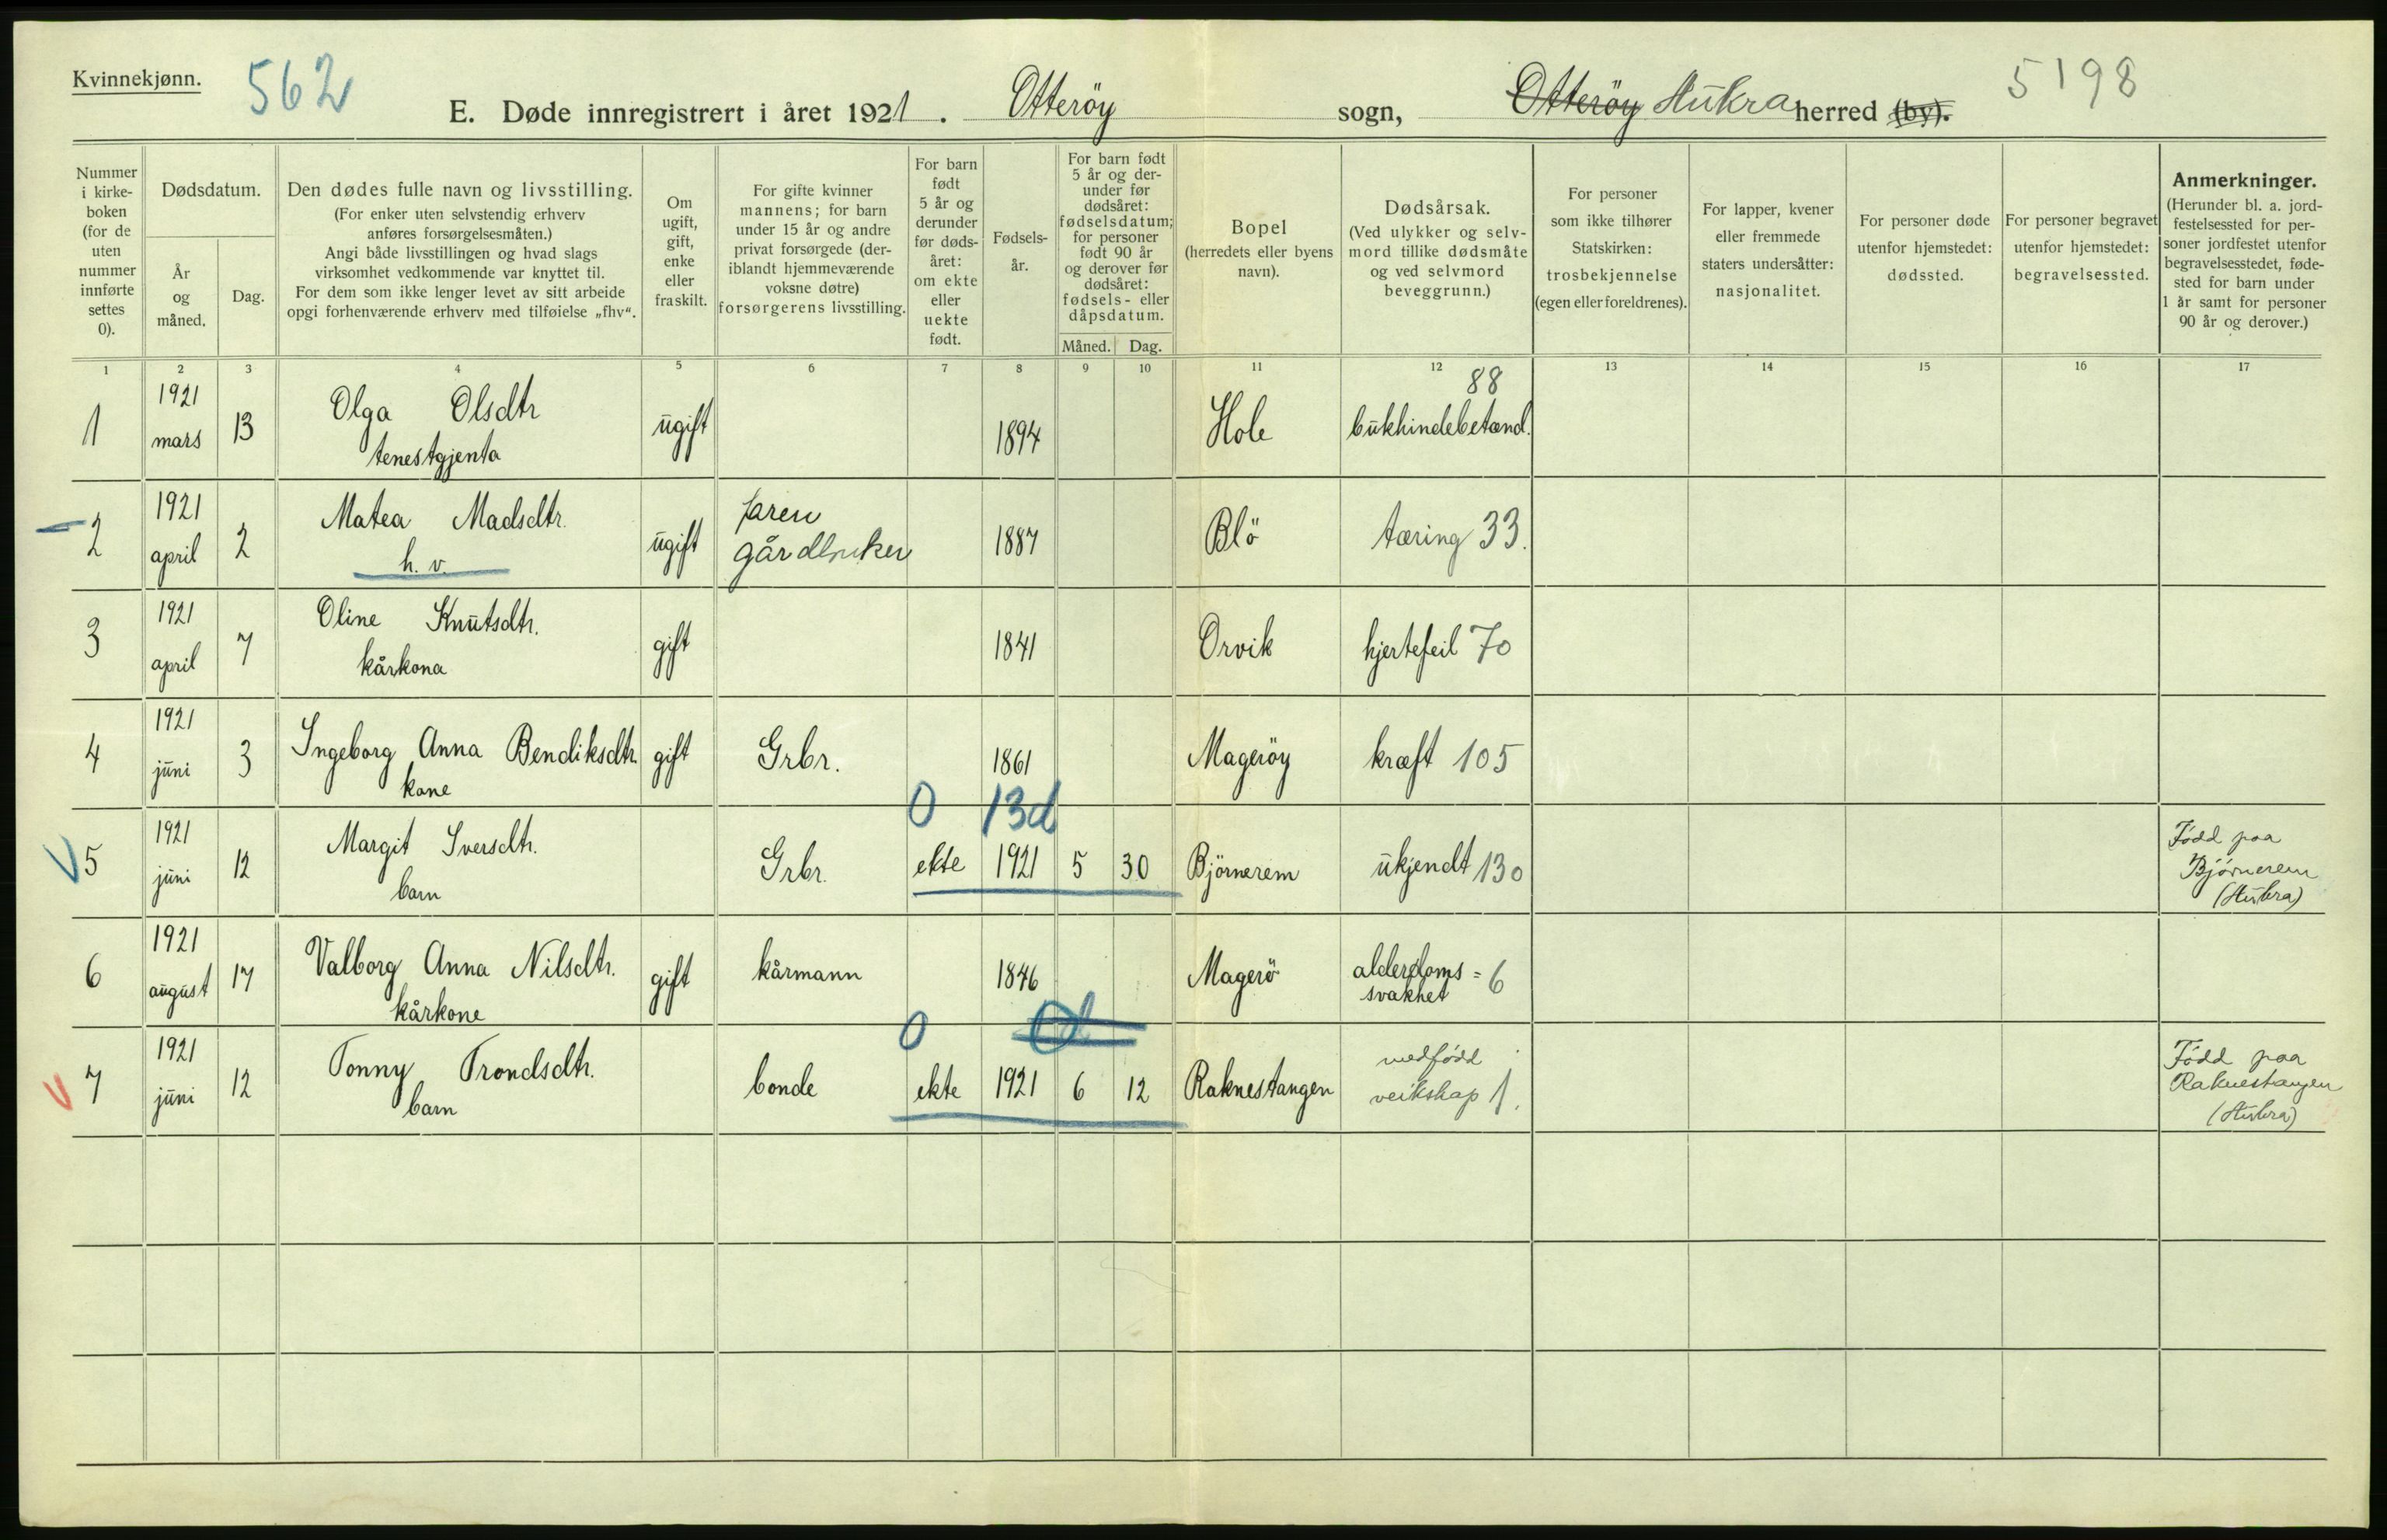 Kvinnekjønn.
562
E. Døde innregistrert i året 1921. Otteröy sogn, Otteröy Aukra herred (by).
5198
Nummer i kirkeboken (for de uten nummer innførte settes 0).
Dødsdatum.
År og måned.
Dag.
Den dødes fulle navn og livsstilling.
(For enker uten selvstendig erhverv
anføres forsørgelsesmåten.)
Angi både livsstillingen og hvad slags
virksomhet vedkommende var knyttet til.
For dem som ikke lenger levet av sitt arbeide
opgi forhenværende erhverv med tilføielse „fhv“.
Om ugift, gift, enke eller fraskilt.
For gifte kvinner
mannens; for barn
under 15 år og andre
privat forsørgede (der-
iblandt hjemmeværende
voksne døtre)
forsørgerens livsstilling.
For barn
født
5 år og
derunder
før døds-
året:
om ekte
eller
uekte
født.
Fødsels-
år.
For barn født
5 år og der-
under før
dødsåret:
fødselsdatum;
for personer
født 90 år
og derover før
dødsåret:
fødsels- eller
dåpsdatum.
Måned. Dag.
Bopel
(herredets eller byens
navn).
Dødsårsak.
(Ved ulykker og selv-
mord tillike dødsmåte
og ved selvmord
beveggrunn.)
For personer
som ikke tilhører
Statskirken:
trosbekjennelse
(egen eller foreldrenes).
For lapper, kvener
eller fremmede
staters undersåtter:
nasjonalitet.
For personer døde
utenfor hjemstedet:
dødssted.
For personer begravet
utenfor hjemstedet:
begravelsessted.
Anmerkninger.
(Herunder bl. a. jord-
festelsessted for per-
soner jordfestet utenfor
begravelsesstedet, føde-
sted for barn under
1 år samt for personer
90 år og derover.)
1 2 3 4 5 6 7 8 9 10 11 12 13 14 15 16 17
1 1921 mars 13 Olga Olsdtr tenestgjenta ugift 1894 Hole bukhindebetænd. 88
2 1921 april 2 Matea Madsdtr. h. v. ugift faren gårdbruker 1887 Blö tæring 33.
3 1921 april 7 Oline Knutsdtr. kårkona gift 1841 Orvik hjertefeil 70
4 1921 juni 3 Ingeborg Anna Bendiksdtr. kone gift Grbr. 1861 Mageröy kræft 105
0 13d
V 5 1921 juni 12 Margit Iversdtr. barn Grbr. ekte 1921 5 30 Björnerem ukjendt 130 Född paa Björnerem (Aukra)
6 1921 august 17 Valborg Anna Nilsdtr. kårkone gift kårmann 1846 Magerö alderdoms= svakhet 6
0 0d
V 7 1921 juni 12 Tonny Trondsdtr. barn bonde ekte 1921 6 12 Raknestangen medfödd veikskap 1. Född paa Raknestangen (Aukra)